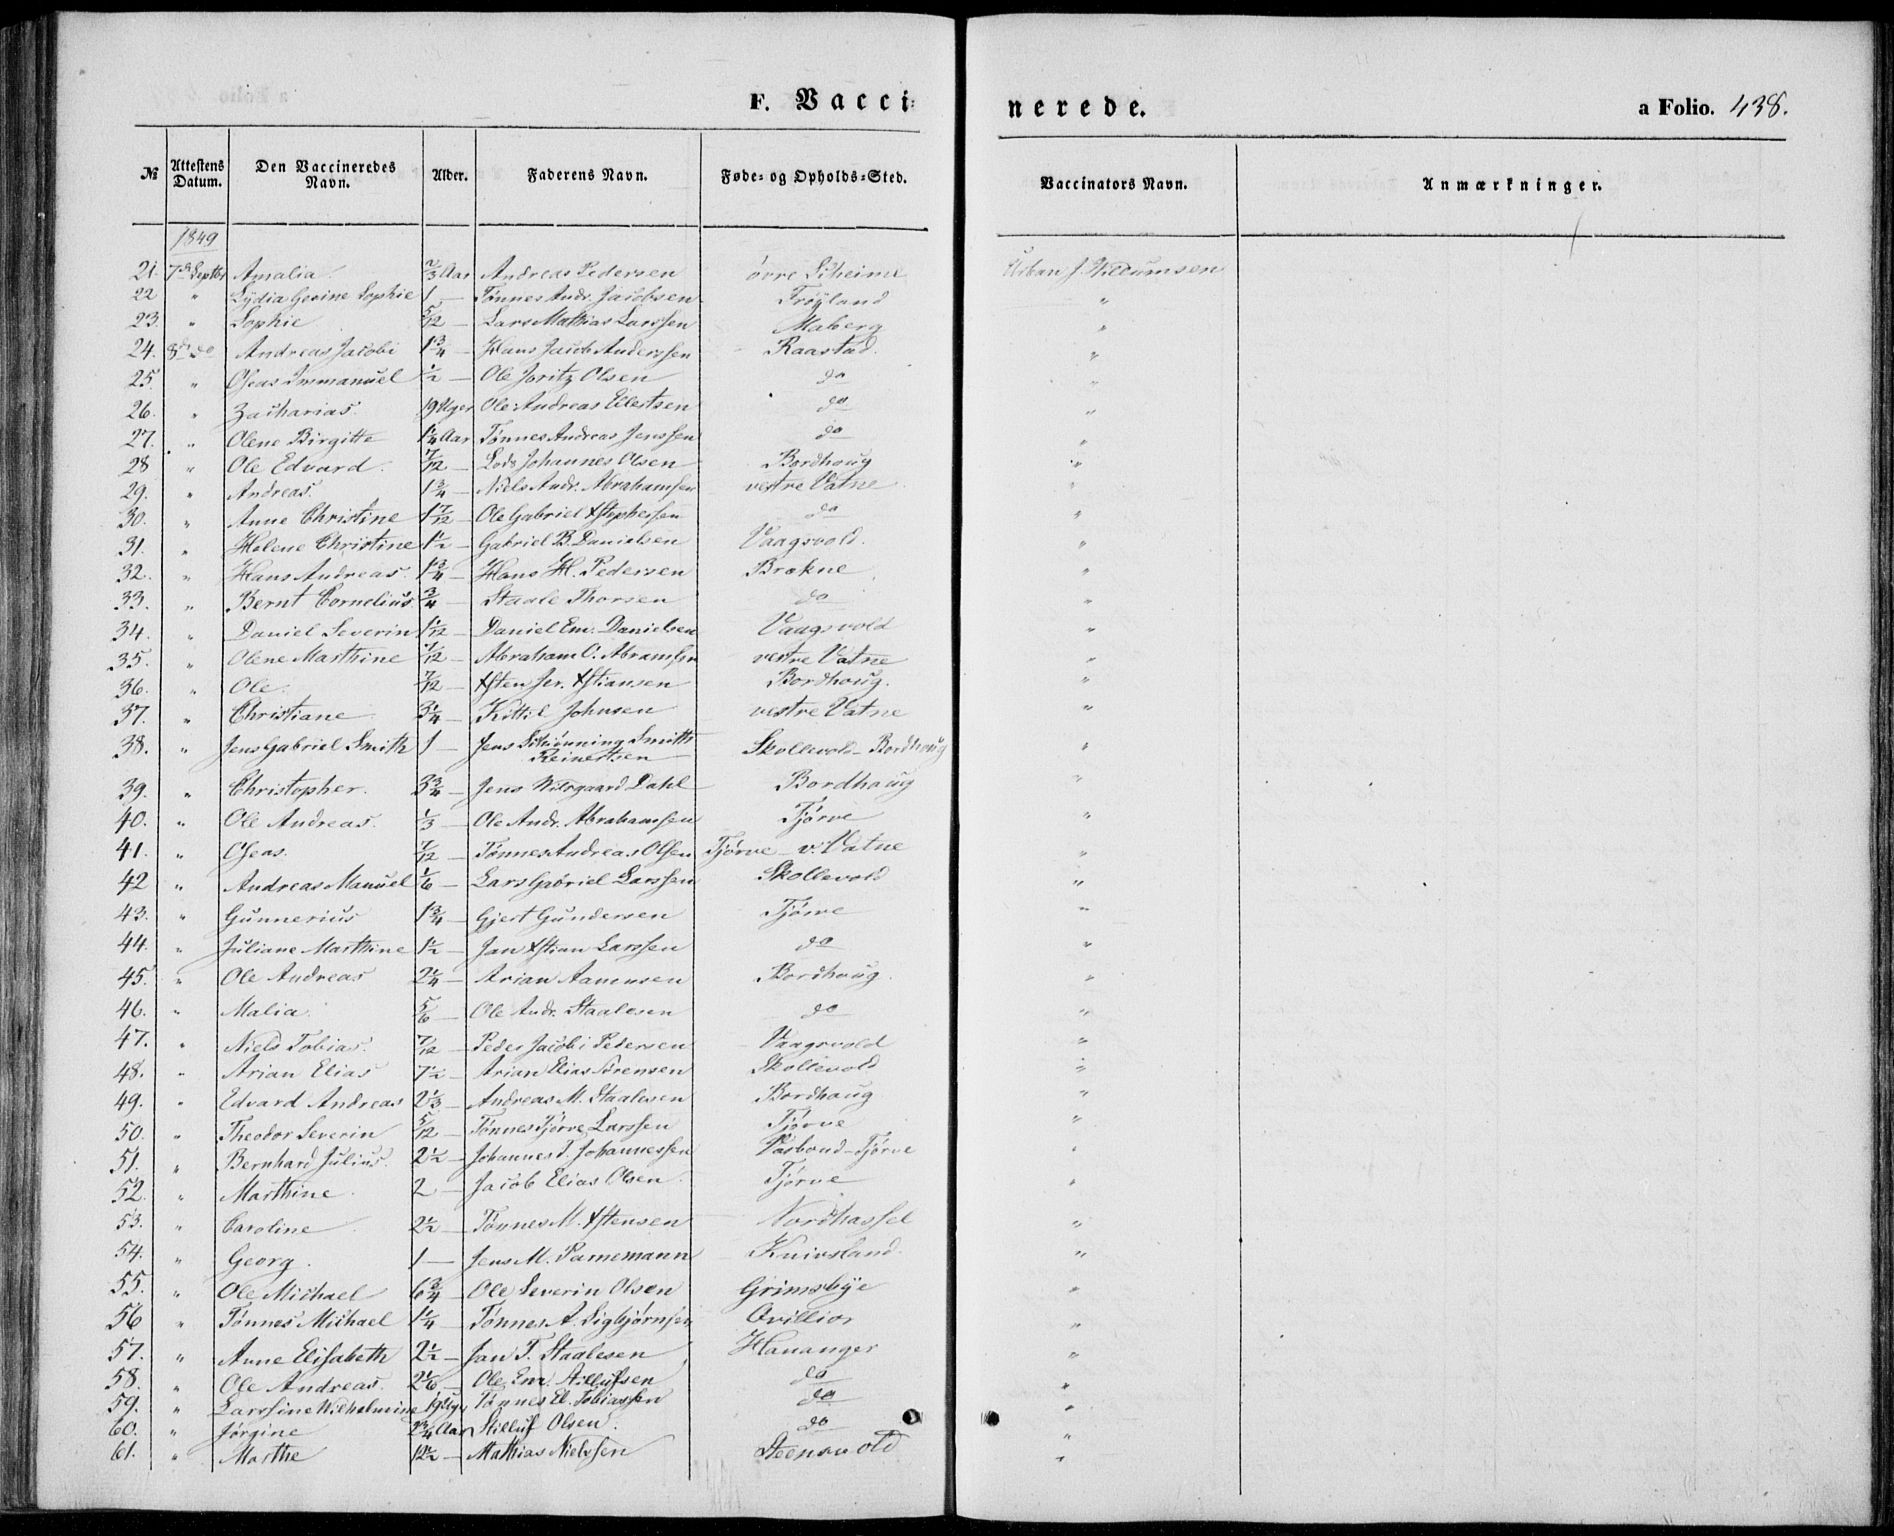 F. Vacci-
nerede.
a Folio. 438.
№ Attestens Datum. Den Vaccineredes Navn. Alder. Faderens Navn. Føde- og Opholds-Sted. Vaccinators Navn. Anmærkninger.
1849
21. 7de Septbr Amalia 2/3 Aar Andreas Pedersen øvre Urban J. Willumsen
22 " Lydia Gevine Sophie 1 — Tønnes Andr. Jacobsen Frøyland "
23. " Sophie 5/12 — Lars Mathias Larssen Maberg "
24. 8de do Andreas Jacobi 1 3/4 — Hans Jacob Anderssen Raastad. "
25. " Oseas Immanuel 1/2 — Ole Joritz Olsen do "
26. " Zacharias. 19 Uger Ole Andreas Ellertsen do "
27. " Olene Birgitte 1 1/4 Aar Tønnes Andreas Jenssen do "
28 " Ole Edvard. 7/12 — Johannes Olsen Bordhoug "
29. " Andreas. 1 3/4 — Niels Andr. Abrahamsen vestre Vatne "
30. " Anne Christine 1 7/12 — Ole Gabriel do "
31. " Helene Christine 1 1/2 — Gabriel B. Danielsen Vaagsvold. "
32. " Hans Andreas. 1 3/4 — Hans H. Pedersen Brekne "
33. " Bernt Cornelius 3/4 — Staale Thorsen do "
34. " Daniel Severin 1 1/12 — Daniel Em. Danielsen Vaagsvold "
35. " Olene Marthine 7/12 — Abraham O. Abramsen vestre Vatne "
36. " Ole. 7/12 — Xsten Xstiansen Bordhoug. "
37. " Christiane 3 1/4 — Kittil Johnsen vestre Vatne "
38. " Jens Gabriel Smith 1 — Jens Schiønning Smith Skollevold - Bordhoug "
Reinertsen
39. " Christopher. 3 3/4 — Jens Dahl Bordhoug "
40. " Ole Andreas. 1/3 — Ole Andr. Abrahamsen Tjørve "
41. " Oseas. 7/12 — Tønnes Andreas Olsen Tjørve - v. Vatne "
42 " Andreas Manuel 1/6 — Lars Gabriel Larssen Skollevold "
43. " Gunnerius 1 3/4 — Gjert Gundersen Tjørve "
44. " Juliane Marthine 1 1/2 — Jan Xstian Larssen do "
45. " Ole Andreas 2 1/4 — Arian Aanensen Bordhoug. "
46. " Malia. 5/6 — Ole Andr. Staalesen do "
47. " Niels Tobias. 7/12 — Peder Jacobi Pedersen Vaagsvold "
48. " Arian Elias 7 1/2 — Arian Elias Sørensen Skollevold "
49. " Edvard Andreas 2 1/3 — Andreas M. Staalesen Bordhoug "
50. " Theodor Severin 5/12 — Tønnes Tjørve Larssen Tjørve "
51. " Bernhard Julius. 2 1/2 — Johannes T. Johannessen Vasbond - Tjørve "
52. " Marthine. 2 — Jacob Elias Olsen. Tjørve "
53. " Caroline. 2 1/2 — Tønnes M. Xstensen Nordhassel "
54. " Georg. 1 — Jens M. Parnemann Knivsland. "
55. " Ole Michael 6 3/4 — Ole Severin Olsen Grimsbye "
56 " Tønnes Michael 1 1/4 — Tønnes A. Sigbjørnsen Ovillior "
57. " Anne Elisabeth 2 1/2 — Jan T. Staalesen Hananger "
58. " Ole Andreas. 2 1/6 — Ole Em. Stillufsen do "
59. " Larssine Wilhelmine 19 Uger Tønnes El. Tobiassen do "
60. " Jørgine 2 3/4 Aar Stilluf Olsen. do "
61. " Marthe 12 1/2 — Mathias Nielssen Steensvold "